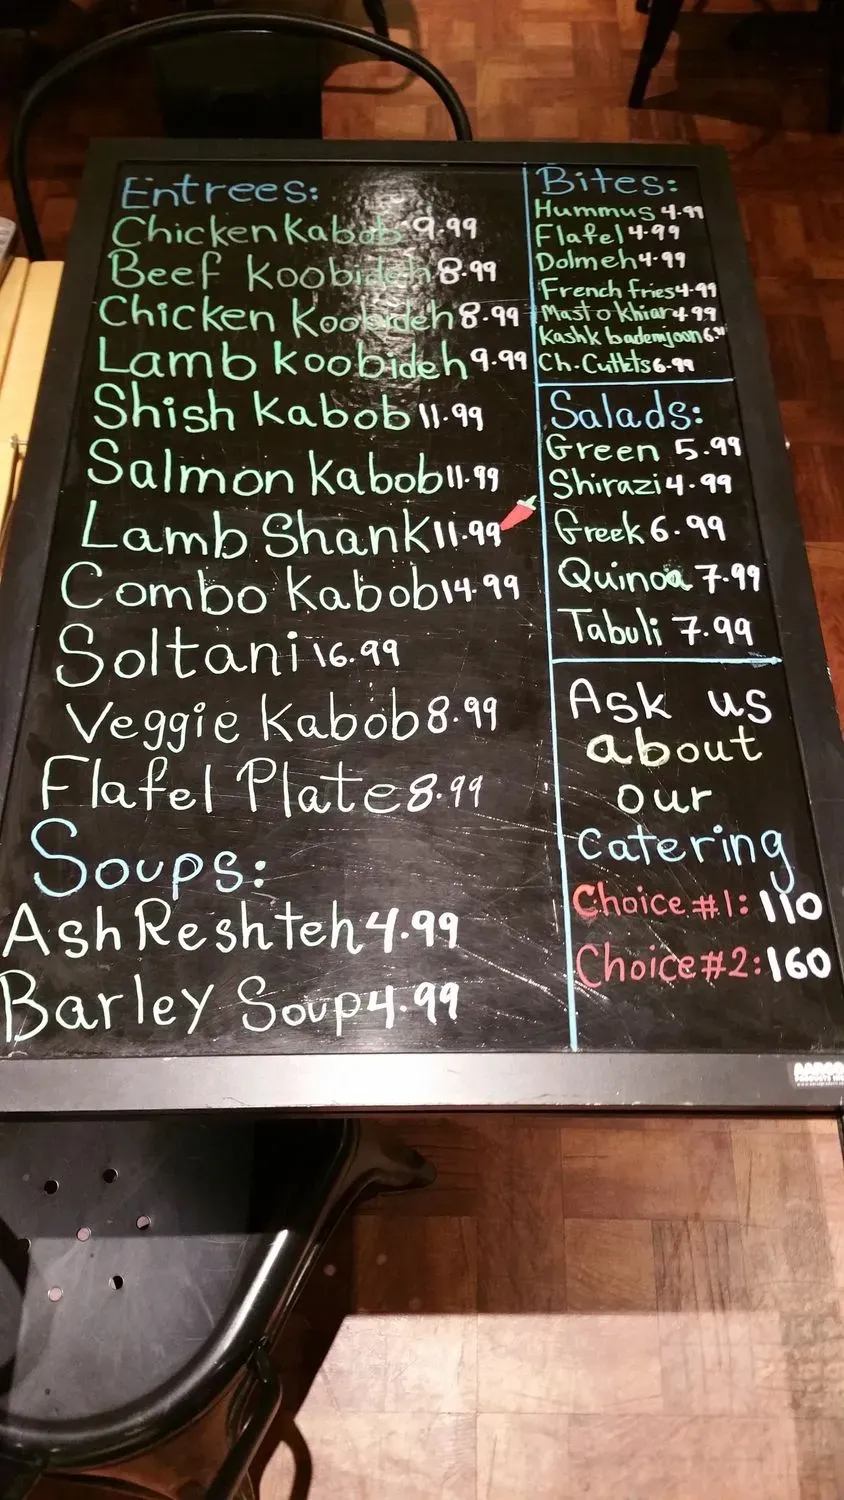 Entrees:
Chicken Kabob 9.99
Beef Koobideh 8.99
Chicken Koobideh 8.99
Lamb Koobideh 9.99
Shish Kabob 11.99
Salmon Kabob 11.99
Lamb Shank 11.99
Combo Kabob 14.99
Soltani 16.99
Veggie Kabob 8.99
Flafel Plate 8.99
Soups:
Ash Reshteh 4.99
Barley Soup 4.99
Bites:
Hummus 4.99
Flafel 4.99
Dolmeh 4.99
French fries 4.99
Mast o khiar 4.99
Kashk bademjoon 6.99
Ch-Cutlets 6.99
Salads:
Green 5.99
Shirazi 4.99
Greek 6.99
Quinoa 7.99
Tabuli 7.99
Ask us
about
our
catering
Choice #1: 110
Choice #2: 160